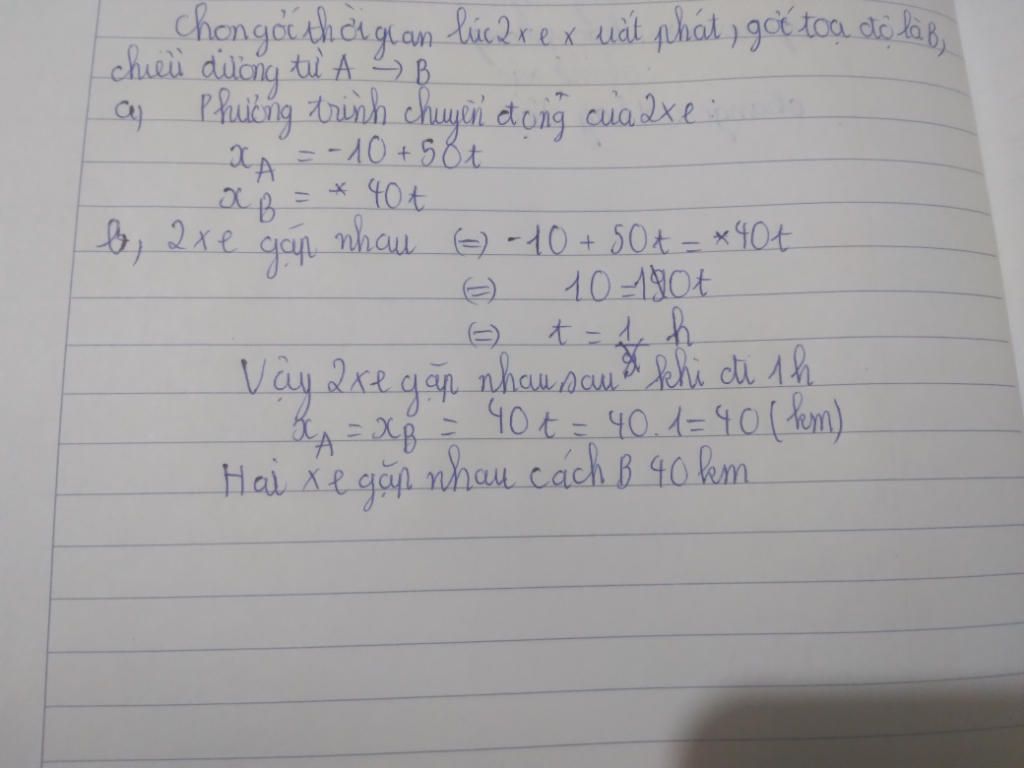 Chọn gốc thời gian lúc 2 xe xuất phát, gốc toạ độ là B,
chiều dương từ A → B
a) Phương trình chuyển động của 2 xe:
x_A = -10 + 50t
x_B = 40t
b, 2 xe gặp nhau (=) -10 + 50t = 40t
(=) 10 = 10t
(=) t = 1 h
Vậy 2 xe gặp nhau sau khi đi 1h
x_A = x_B = 40t = 40.1 = 40 (km)
Hai xe gặp nhau cách B 40 km